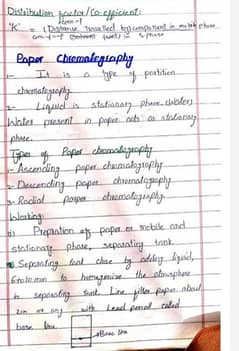 Distribution factor/Co-efficient:
"K" = (Distance travelled by component in mobile phase
Paper Chromatography
1- It is a type of partition
chromatography.
2- Liquid is stationary phase (water)
Water present in paper acts as stationary
phase.
Types of Paper chromatography
1- Ascending paper chromatography
2- Descending paper chromatography
3- Radial paper chromatography.
Working:
a) Preparation of paper or mobile and
stationary phase, separating tank
Separating tank close by adding liquid,
to homogenize the atmosphere
in separating tank. Line filter paper about
2cm or any with Lead pencil called
base line.
Base line